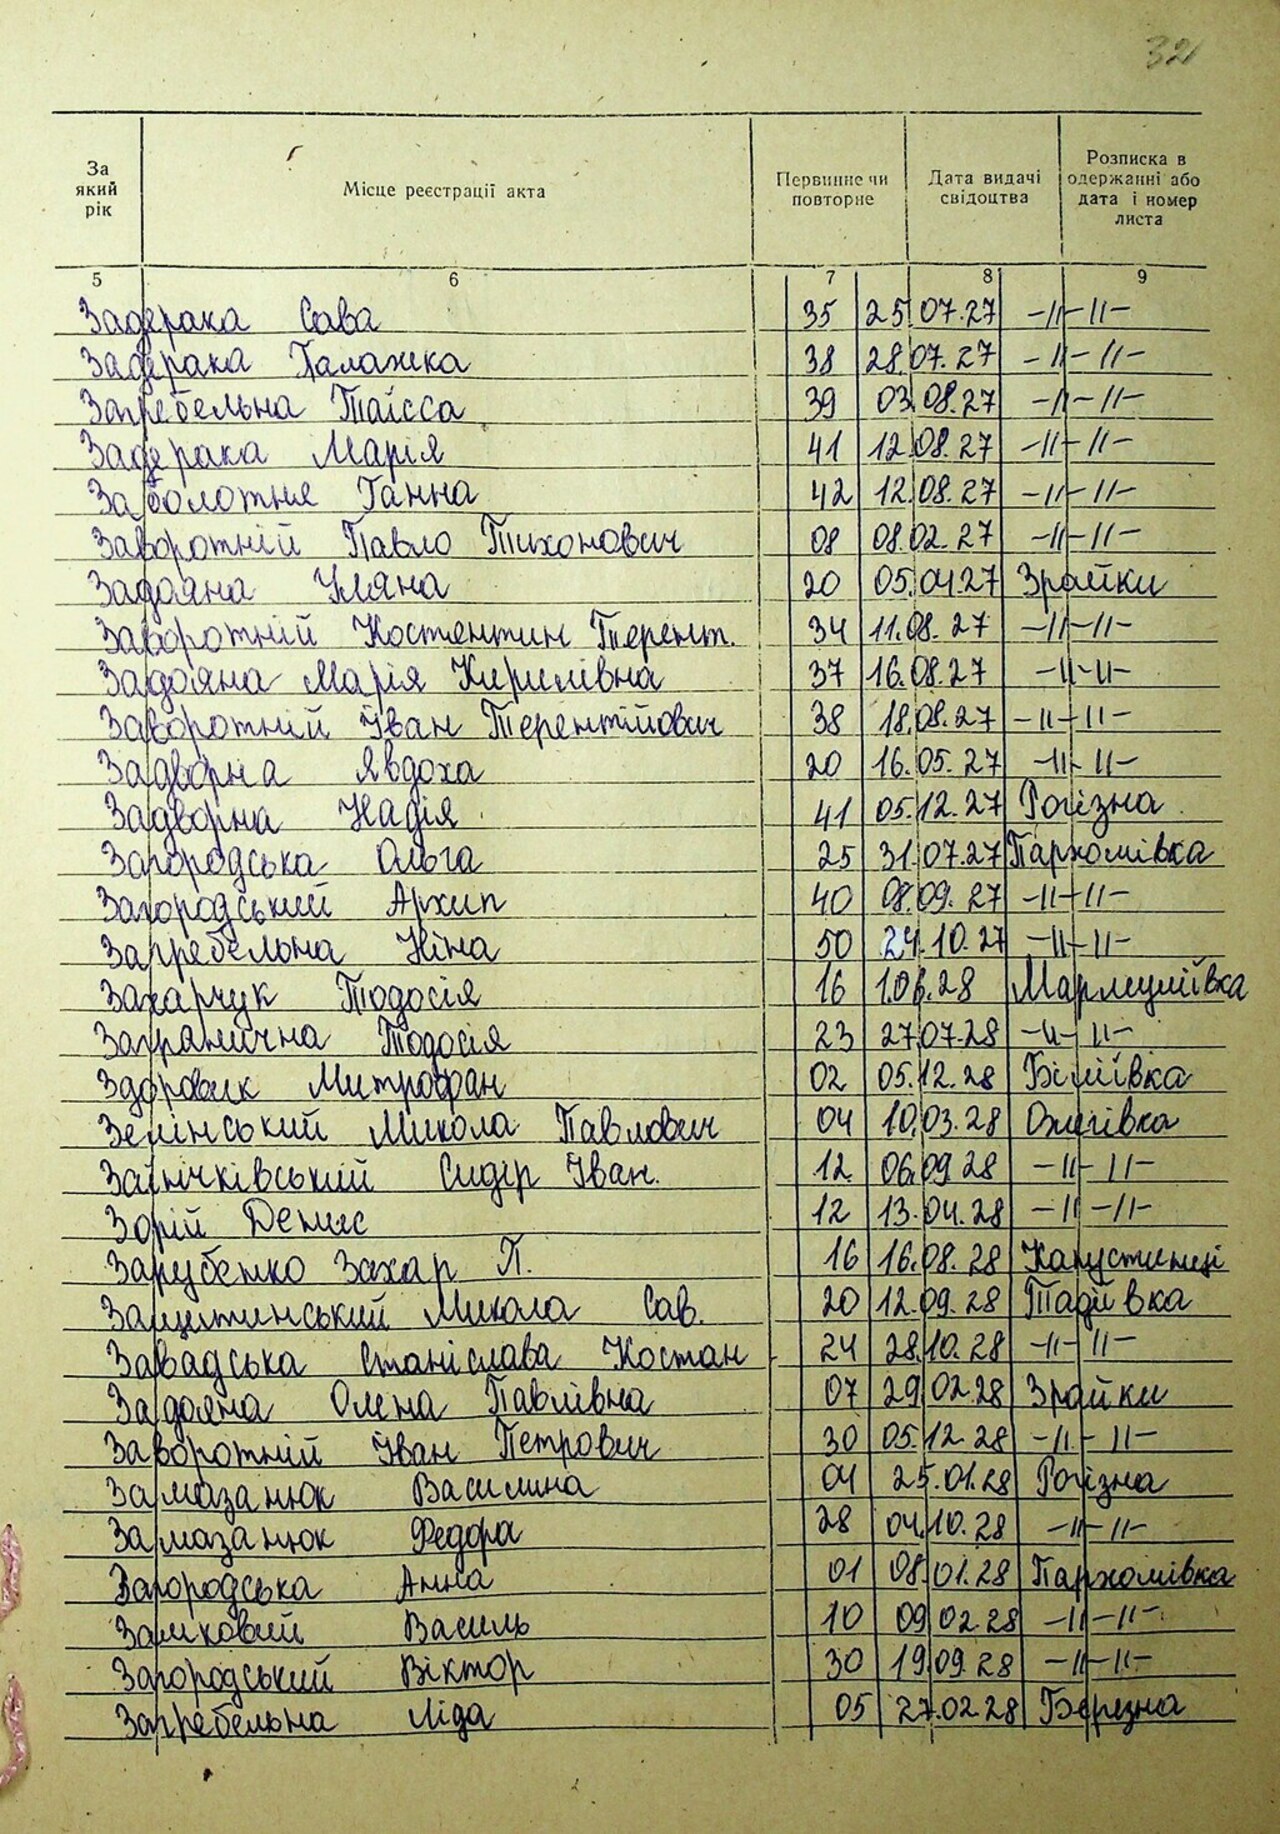 32
За який рік
Місце реєстрації акта
Первинне чи повторне
Дата видачі свідоцтва
Розписка в одержанні або дата і номер листа
5 6 7 8 9
Задерака Сава 35 25.07.27 –//–//–
Задерака Палажка 38 28.07.27 –//–//–
Загребельна Таїсса 39 03.08.27 –//–//–
Задерака Марія 41 12.08.27 –//–//–
Заболотня Ганна 42 12.08.27 –//–//–
Заворотній Павло Тихонович 08 08.02.27 –//–//–
Задояна Уляна 20 05.04.27 Зрайки
Заворотній Костянтин Терент. 34 11.08.27 –//–//–
Задояна Марія Кирилівна 37 16.08.27 –//–//–
Заворотній Іван Терентійович 38 18.08.27 –//–//–
Задворна Явдоха 20 16.05.27 –//–//–
Задворна Надія 41 05.12.27 Рогізна
Загородська Ольга 25 31.07.27 Пархомівка
Загородський Архип 40 08.09.27 –//–//–
Загребельна Ніна 50 24.10.27 –//–//–
Захарчук Тодосія 16 1.06.28
Загранична Тодосія 23 27.07.28 –//–//–
Здоровик Митрофан 02 05.12.28 Біліївка
Зелінський Микола Павлович 04 10.03.28 Ожегівка
Сидір Іван. 12 06.09.28 –//–//–
Зорій Денис 12 13.04.28 –//–//–
Зарубенко Захар П. 16 16.08.28 Капустинці
Микола Сав. 20 12.09.28 Тадіївка
Завадська Станіслава Костан 24 28.10.28 –//–//–
Задояна Олена Павлівна 07 29.02.28 Зрайки
Заворотній Іван Петрович 30 05.12.28 –//–//–
Замазанюк Василина 04 25.01.28 Рогізна
Замазанюк Федора 28 04.10.28 –//–//–
Загородська Анна 01 08.01.28 Пархомівка
Замковий Василь 10 09.02.28 –//–//–
Загородський Віктор 30 19.09.28 –//–//–
Загребельна Ліда 05 27.02.28 Березна